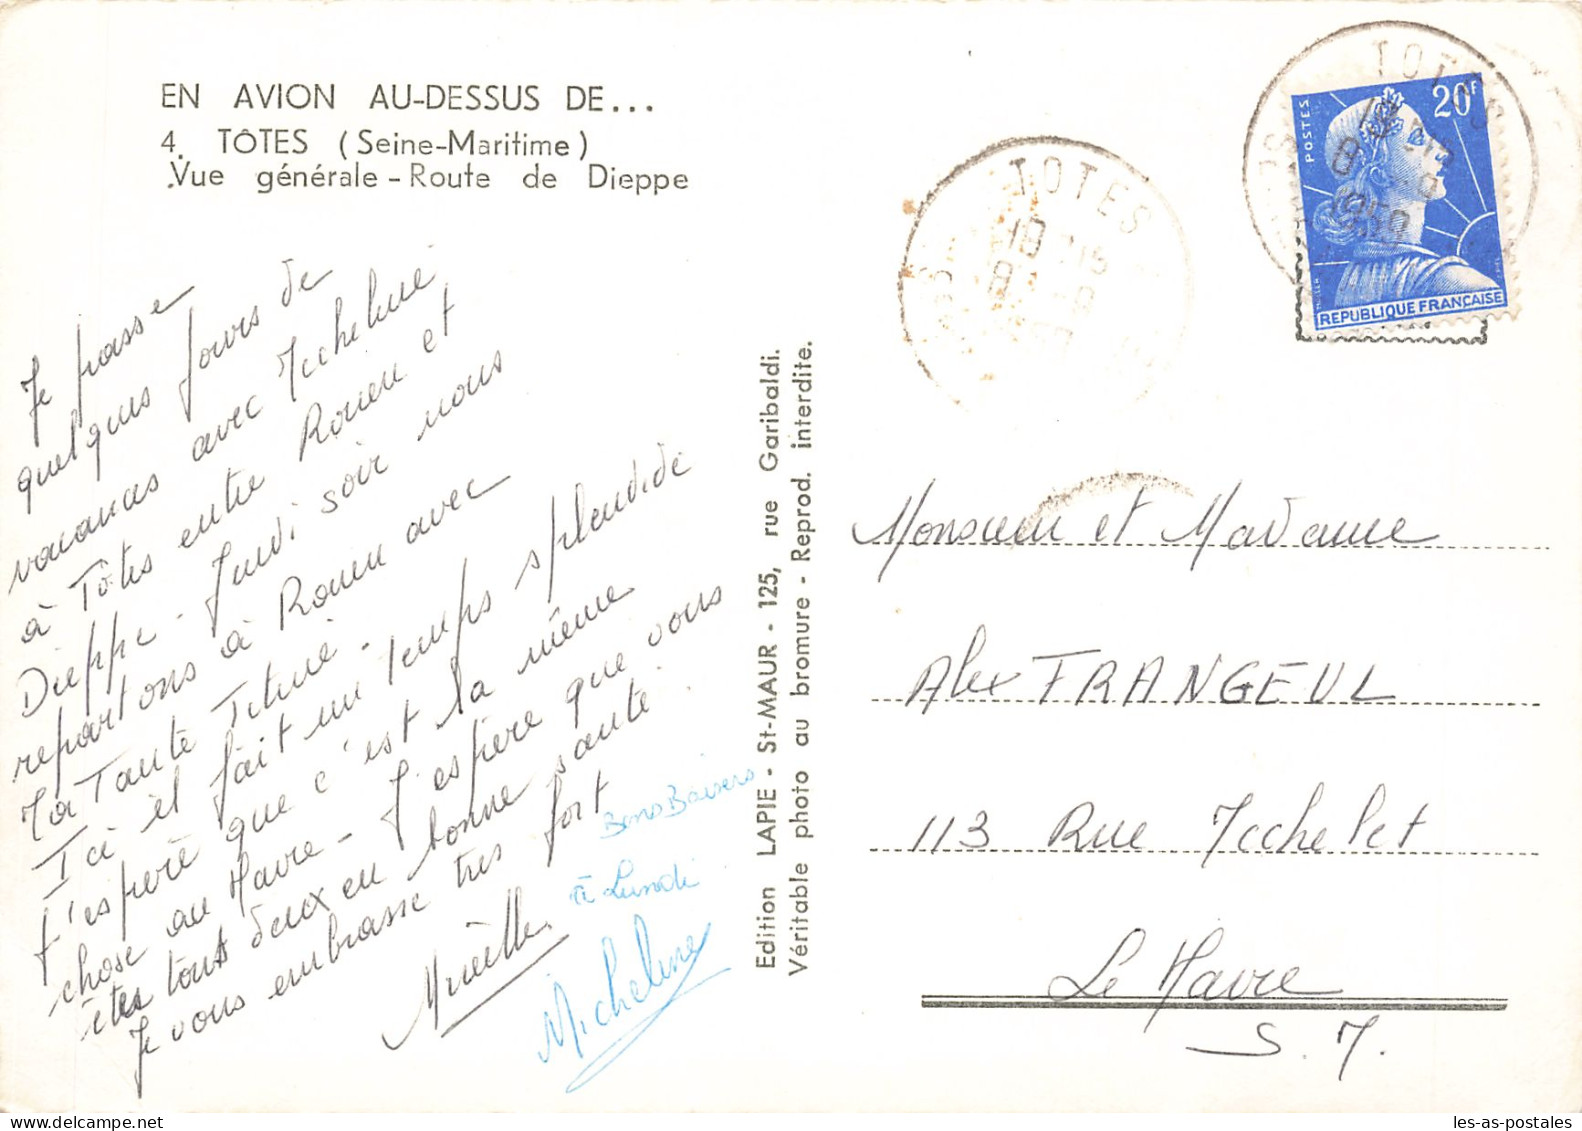 EN AVION AU-DESSUS DE...
4. TÔTES (Seine-Maritime)
Vue générale - Route de Dieppe
Je passe
quelques jours de
vacances avec Micheline
à Tôtes entre Rouen et
Dieppe. Jeudi soir nous
repartons à Rouen avec
Ma Tante Titine.
Ici il fait un temps splendide
J'espère que c'est la même
chose au Havre - J'espère que vous
êtes tous deux en bonne santé.
Je vous embrasse très fort
Mireille.
Bons Baisers
à Lundi
Micheline
Edition LAPIE - St-MAUR - 125, rue Garibaldi.
Véritable photo au bromure - Reprod. interdite.
TOTES
18
8 -9
TOTES
18
8 -9
1959
POSTES
20F
REPUBLIQUE FRANÇAISE
Monsieur et Madame
Alex FRANGEUL
113 Rue Michelet
Le Havre
S. M.
les-as-postales